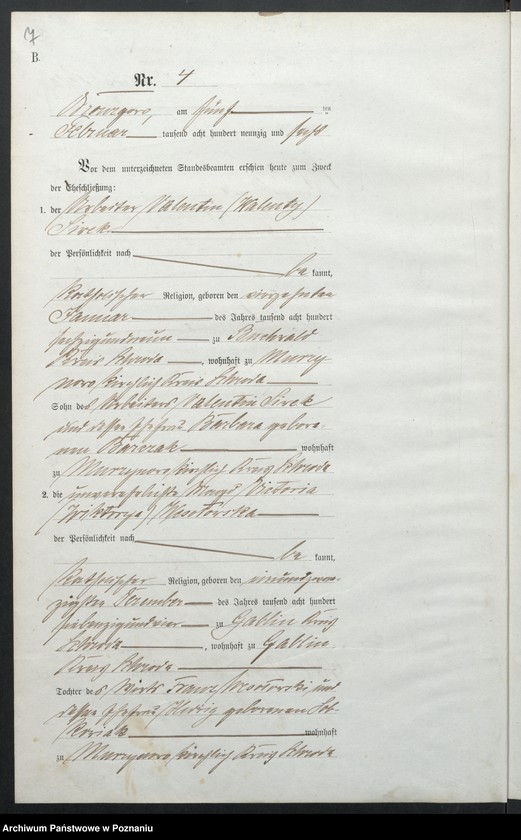 7
B.
Nr. 4
am fünf ten
Februar tausend acht hundert neunzig und sechs
Vor dem unterzeichneten Standesbeamten erschien heute zum Zweck
der Eheschließung:
1. der Arbeiter Valentin (Walenty)
Sirek
der Persönlichkeit nach
be kannt,
katholischer Religion, geboren den vierzehnten
Januar des Jahres tausend acht hundert
sechzigundneun zu Buchwald
Kreis Schroda, wohnhaft zu Murzy-
nowo kirchlich Kreis Schroda
Sohn des Arbeiters Valentin Sirek
und dessen Ehefrau Barbara gebore-
nen wohnhaft
zu Murzynowo kirchlich Kreis Schroda
2. die unverehelichte Magd Victoria
(Wiktorya)
der Persönlichkeit nach
be kannt,
katholischer Religion, geboren den einundzwan-
zigsten Dezember des Jahres tausend acht hundert
siebenzigundvier zu Gablin Kreis
Schroda, wohnhaft zu Gablin
Kreis Schroda
Tochter des Wirts Franz und
dessen Ehefrau Hedwig geborenen
wohnhaft
zu Murzynowo kirchlich Kreis Schroda
Archiwum Państwowe w Poznaniu